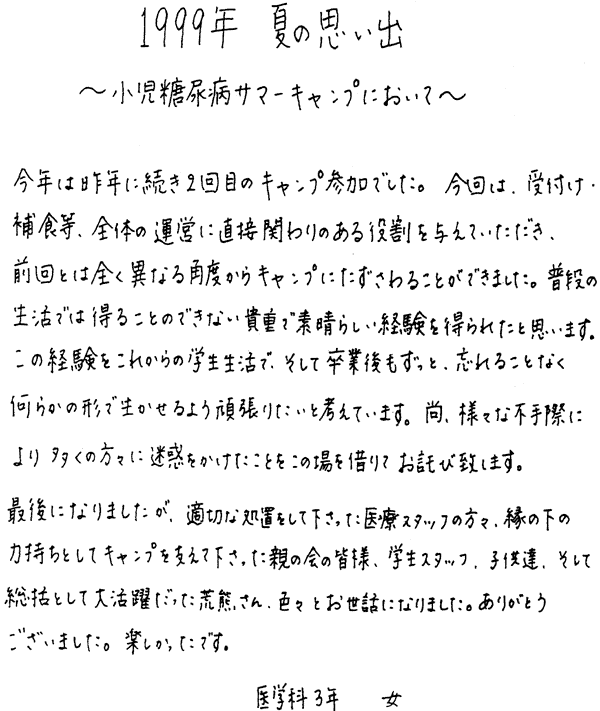 1999年 夏の思い出
～小児糖尿病サマーキャンプにおいて～
今年は昨年に続き2回目のキャンプ参加でした。今回は、受付け・
補食等、全体の運営に直接関わりのある役割を与えていただき、
前回とは全く異なる角度からキャンプにたずさわることができました。普段の
生活では得ることのできない貴重で素晴らしい経験を得られたと思います。
この経験をこれからの学生生活で、そして卒業後もずっと、忘れることなく
何らかの形で生かせるよう頑張りたいと考えています。尚、様々な不手際に
より多くの方々に迷惑をかけたことをこの場を借りてお詫び致します。
最後になりましたが、適切な処置をして下さった医療スタッフの方々、縁の下の
力持ちとしてキャンプを支えて下さった親の会の皆様、学生スタッフ、子供達、そして
総括として大活躍だった荒熊さん、色々とお世話になりました。ありがとう
ございました。楽しかったです。
医学科3年 女